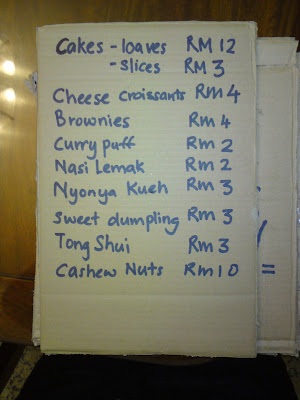 Cakes - loaves RM 12
- slices RM 3
Cheese croissants Rm 4
Brownies Rm 4
Curry puff Rm 2
Nasi Lemak Rm 2
Nyonya Kueh Rm 3
sweet dumpling Rm 3
Tong Shui Rm 3
Cashew Nuts Rm 10
=